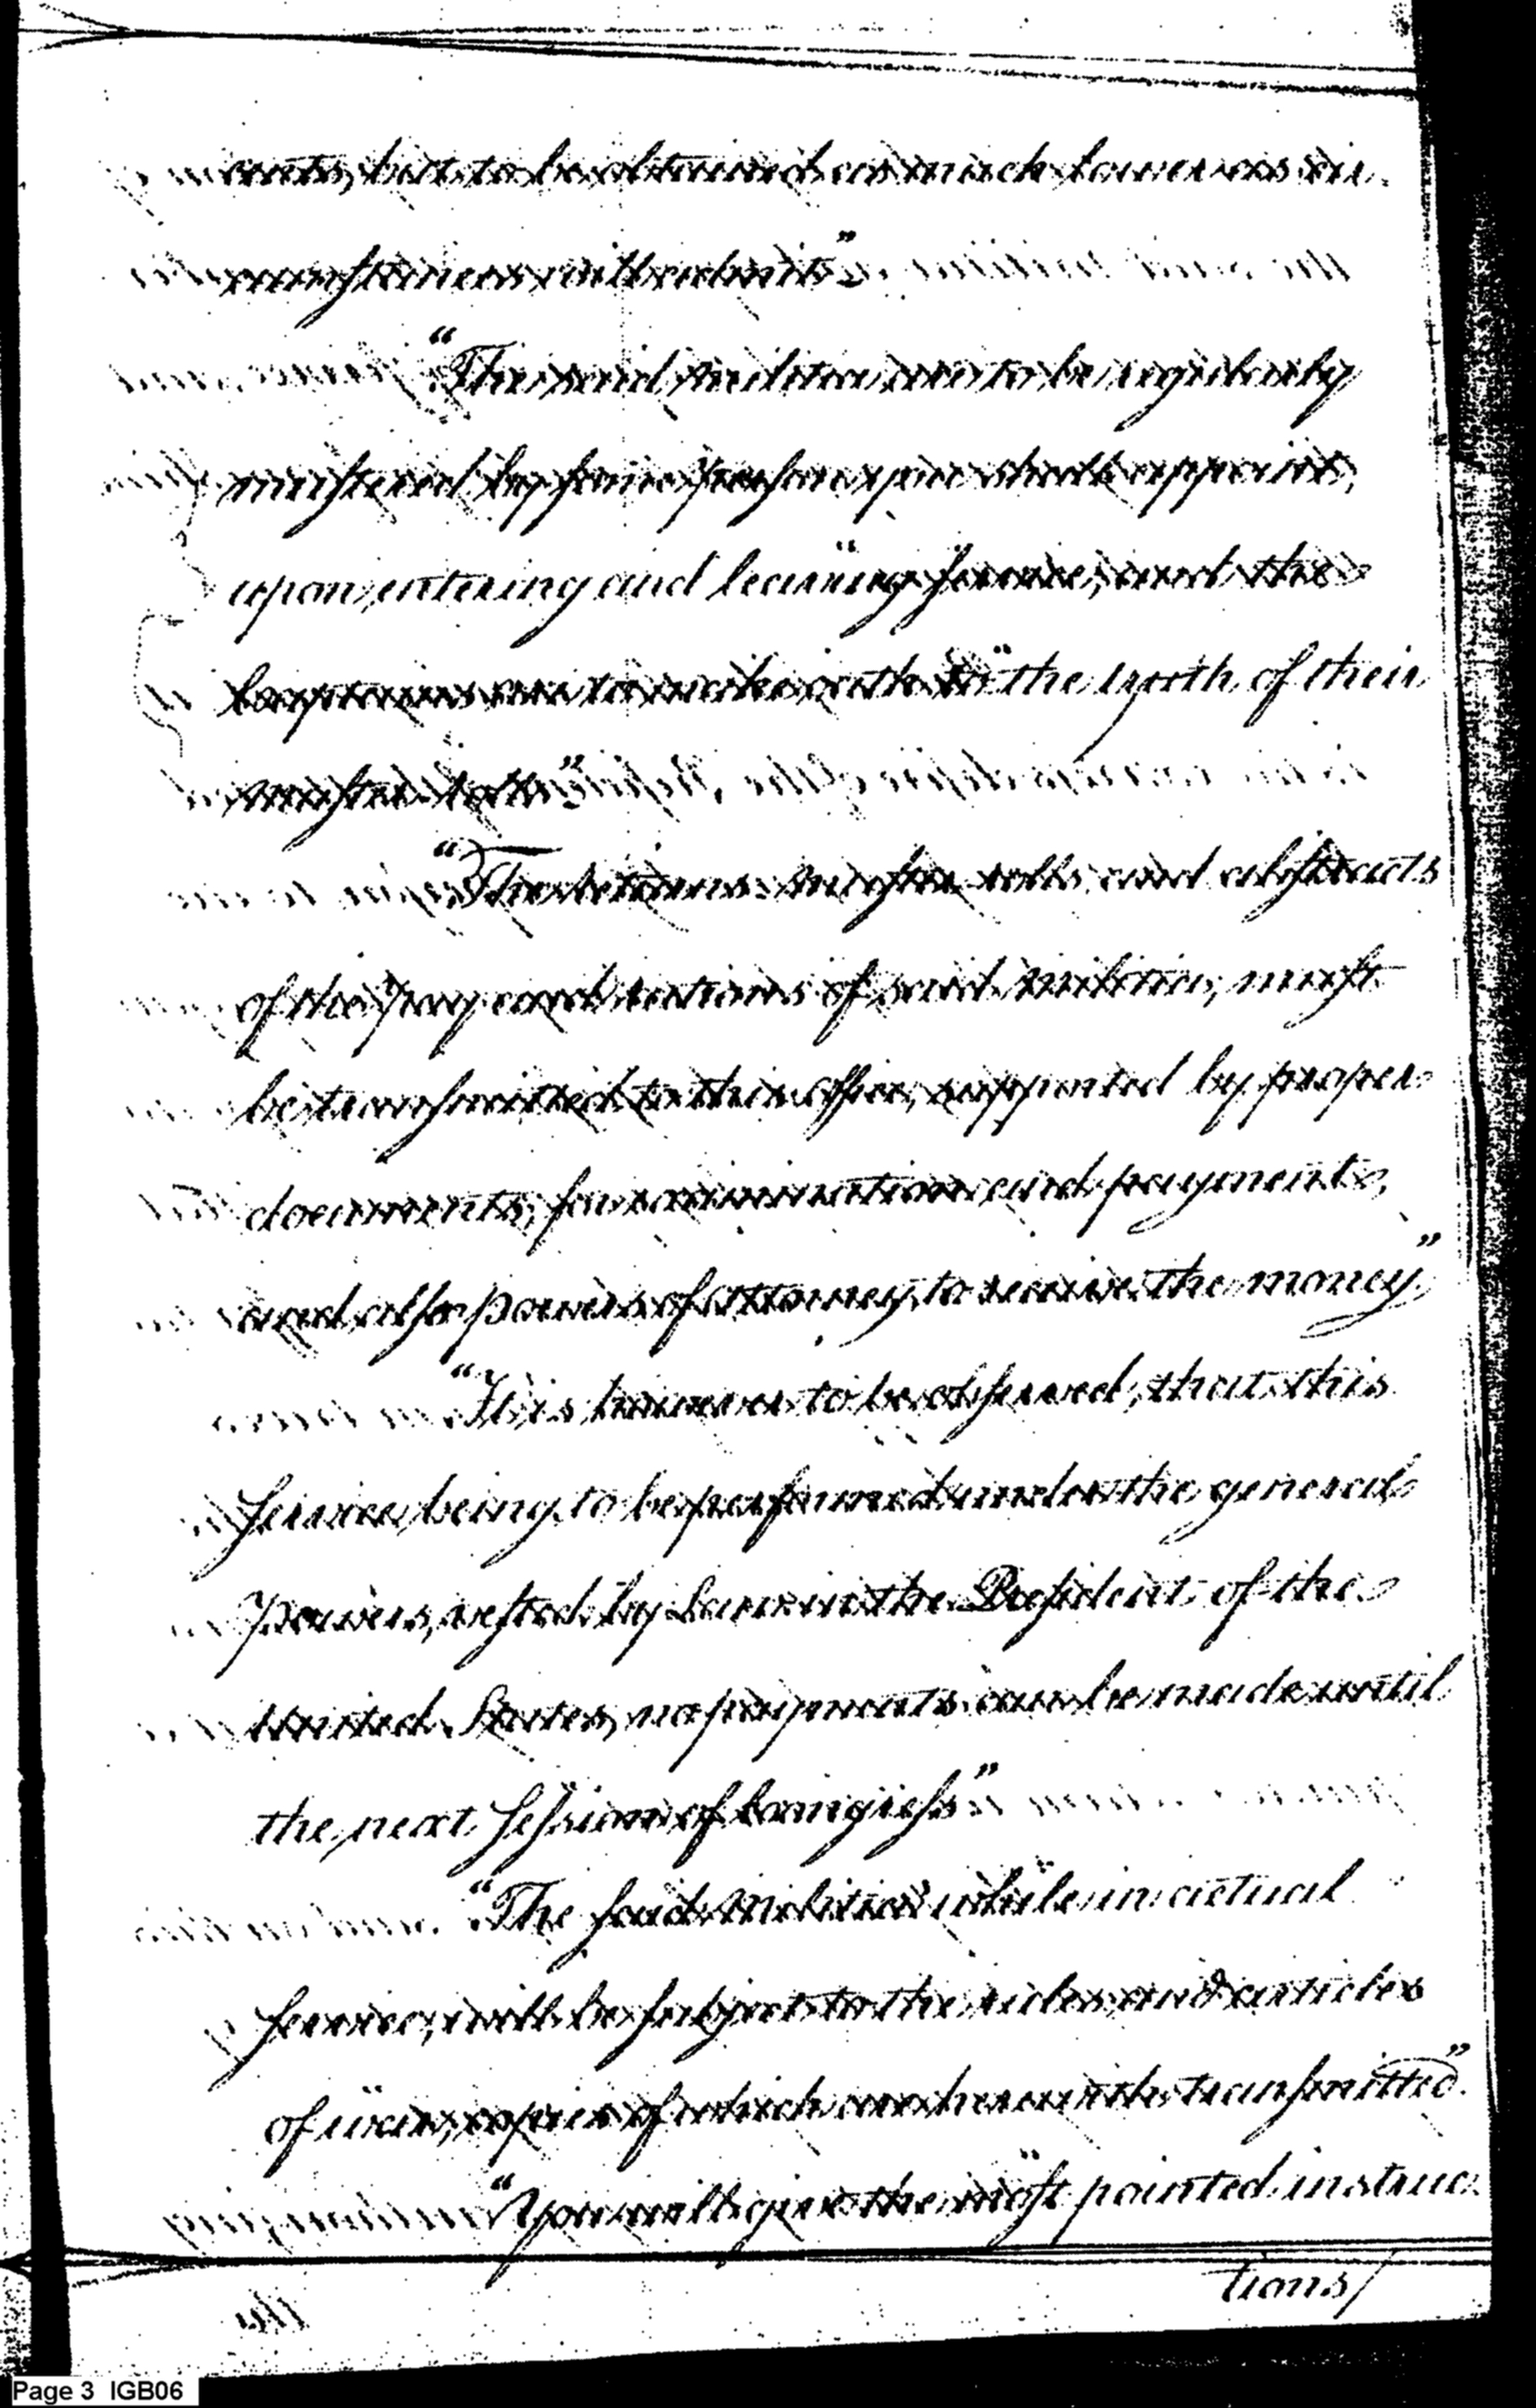 cents, but to be obtained as much lower as cir-
cumstances will admit."
"The said militia are to be regularly
mustered by some person you shall appoint,
upon entering and leaving service, and the
Captains are to make oath to the truth of their
muster rolls."
"The returns muster rolls and abstracts
of the pay and rations of said militia, must
be transmitted to this office, supported by proper
documents, for examination and payments,
and also powers of attorney to receive the money."
"It is however to be observed, that this
service being to be performed under the general
powers, vested by Law in the President of the
United States, no payments can be made until
the next session of Congress."
"The said Militia while in actual
service, will be subject to the rules and articles
of war, copies of which are herewith transmitted."
"You will give the most pointed instruc-
tions/
Page 3 IGB06